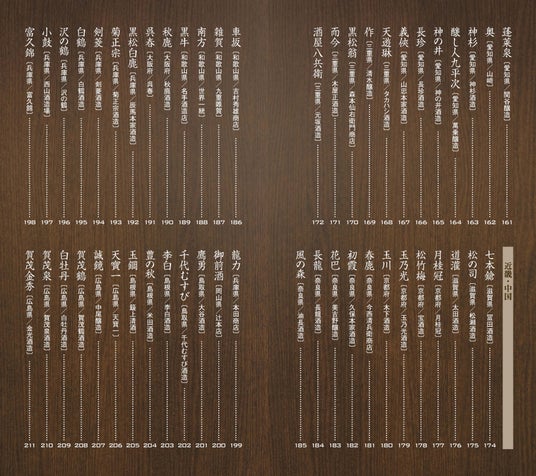 蓬莱泉［愛知県／関谷醸造］ 161
奥［愛知県／山﨑］ 162
神杉［愛知県／神杉酒造］ 163
醸し人九平次［愛知県／萬乗醸造］ 164
神の井［愛知県／神の井酒造］ 165
長珍［愛知県／長珍酒造］ 166
義侠［愛知県／山忠本家酒造］ 167
天遊琳［三重県／タカハシ酒造］ 168
作［三重県／清水醸造］ 169
黒松翁［三重県／森本仙右衛門商店］ 170
而今［三重県／木屋正酒造］ 171
酒屋八兵衛［三重県／元坂酒造］ 172
近畿・中国
七本鎗［滋賀県／冨田酒造］ 174
松の司［滋賀県／松瀬酒造］ 175
道灌［滋賀県／太田酒造］ 176
月桂冠［京都府／月桂冠］ 177
松竹梅［京都府／宝酒造］ 178
玉乃光［京都府／玉乃光酒造］ 179
玉川［京都府／木下酒造］ 180
春鹿［奈良県／今西清兵衛商店］ 181
初霞［奈良県／久保本家酒造］ 182
花巴［奈良県／美吉野醸造］ 183
長龍［奈良県／長龍酒造］ 184
風の森［奈良県／油長酒造］ 185
車坂［和歌山県／吉村秀雄商店］ 186
雑賀［和歌山県／九重雜賀］ 187
南方［和歌山県／世界一統］ 188
黒牛［和歌山県／名手酒造店］ 189
秋鹿［大阪府／秋鹿酒造］ 190
呉春［大阪府／呉春］ 191
黒松白鹿［兵庫県／辰馬本家酒造］ 192
菊正宗［兵庫県／菊正宗酒造］ 193
剣菱［兵庫県／剣菱酒造］ 194
白鶴［兵庫県／白鶴酒造］ 195
沢の鶴［兵庫県／沢の鶴］ 196
小鼓［兵庫県／西山酒造場］ 197
富久錦［兵庫県／富久錦］ 198
龍力［兵庫県／本田商店］ 199
御前酒［岡山県／辻本店］ 200
鷹勇［鳥取県／大谷酒造］ 201
千代むすび［鳥取県／千代むすび酒造］ 202
李白［島根県／李白酒造］ 203
豊の秋［島根県／米田酒造］ 204
玉鋼［島根県／簸上清酒］ 205
天寶一［広島県／天寶一］ 206
誠鏡［広島県／中尾醸造］ 207
賀茂鶴［広島県／賀茂鶴酒造］ 208
白牡丹［広島県／白牡丹酒造］ 209
賀茂泉［広島県／賀茂泉酒造］ 210
賀茂金秀［広島県／金光酒造］ 211